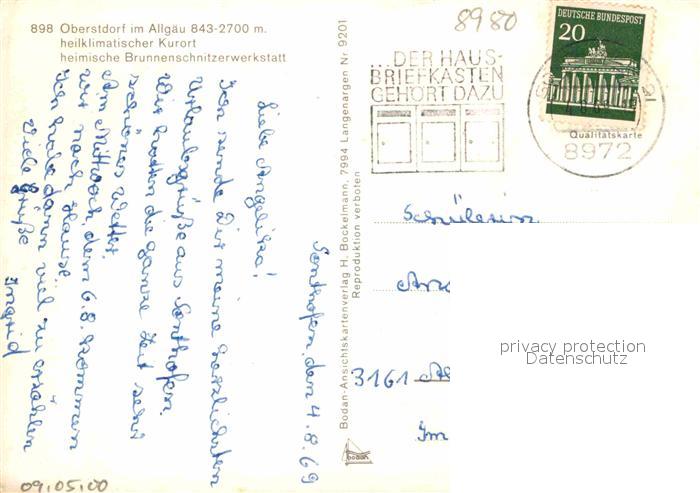 898 Oberstdorf im Allgäu 843-2700 m.
heilklimatischer Kurort
heimische Brunnenschnitzerwerkstatt
Sonthofen, den 4.8.69
Liebe Angelika!
Ich sende Dir meine herzlichsten
Urlaubsgrüße aus Sonthofen.
Wir hatten die ganze Zeit sehr
schönes Wetter.
Am Mittwoch, dem 6.8. kommen
wir nach Hause.
Ich habe dann viel zu erzählen
Viele Grüße
Ingrid
09.05.00
Bodan-Ansichtskartenverlag H. Bockelmann, 7994 Langenargen Nr. 9201
Reproduktion verboten
bodan
8980
...DER HAUS-
BRIEFKASTEN
GEHÖRT DAZU
DEUTSCHE BUNDESPOST
20
Qualitätskarte
8972
Schülerin
3161
Im
privacy protection
Datenschutz